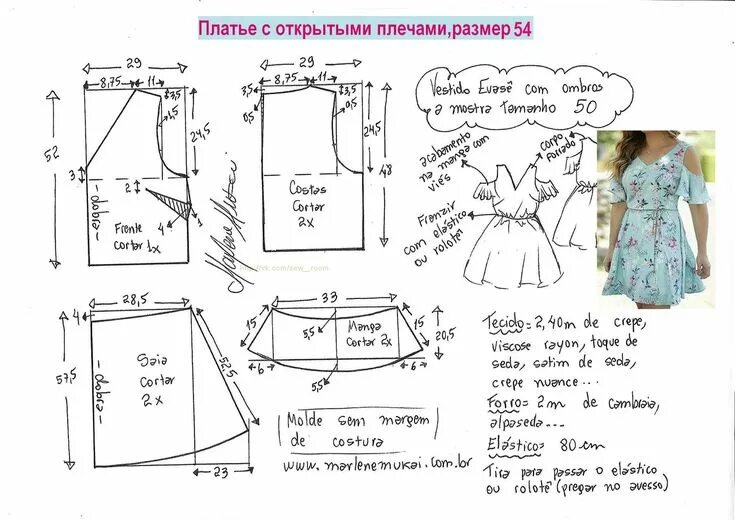 Платье с открытыми плечами,размер 54
29
8,75 11
3,5
1,5
24,5
52
3
2
dobra
4
1
Frente
cortar 1x
29
8,75 11
3,5
3,5
0,5
0,5
24,5
48
Costas
Cortar
2x
vk.com/sew__room
Vestido Evasê com ombros
a mostra Tamanho 50
acabamento
na manga com
viés
corpo
forrado
Franzir
com elástico
ou rolotê
28,5
4
57,5
dobra
Saia
cortar
2x
52,5
23
33
15
5,5
Manga
Cortar 2x
15
20,5
6
5,5
6
Molde sem margem
de costura
www.marlenemukai.com.br
Tecido= 2,40m de crepe,
viscose rayon, toque de
seda, satim de seda,
crepe nuance...
Forro= 2m de cambraia,
alpaseda...
Elástico= 80cm
Tira para passar o elástico
ou rolotê (pregar no avesso)